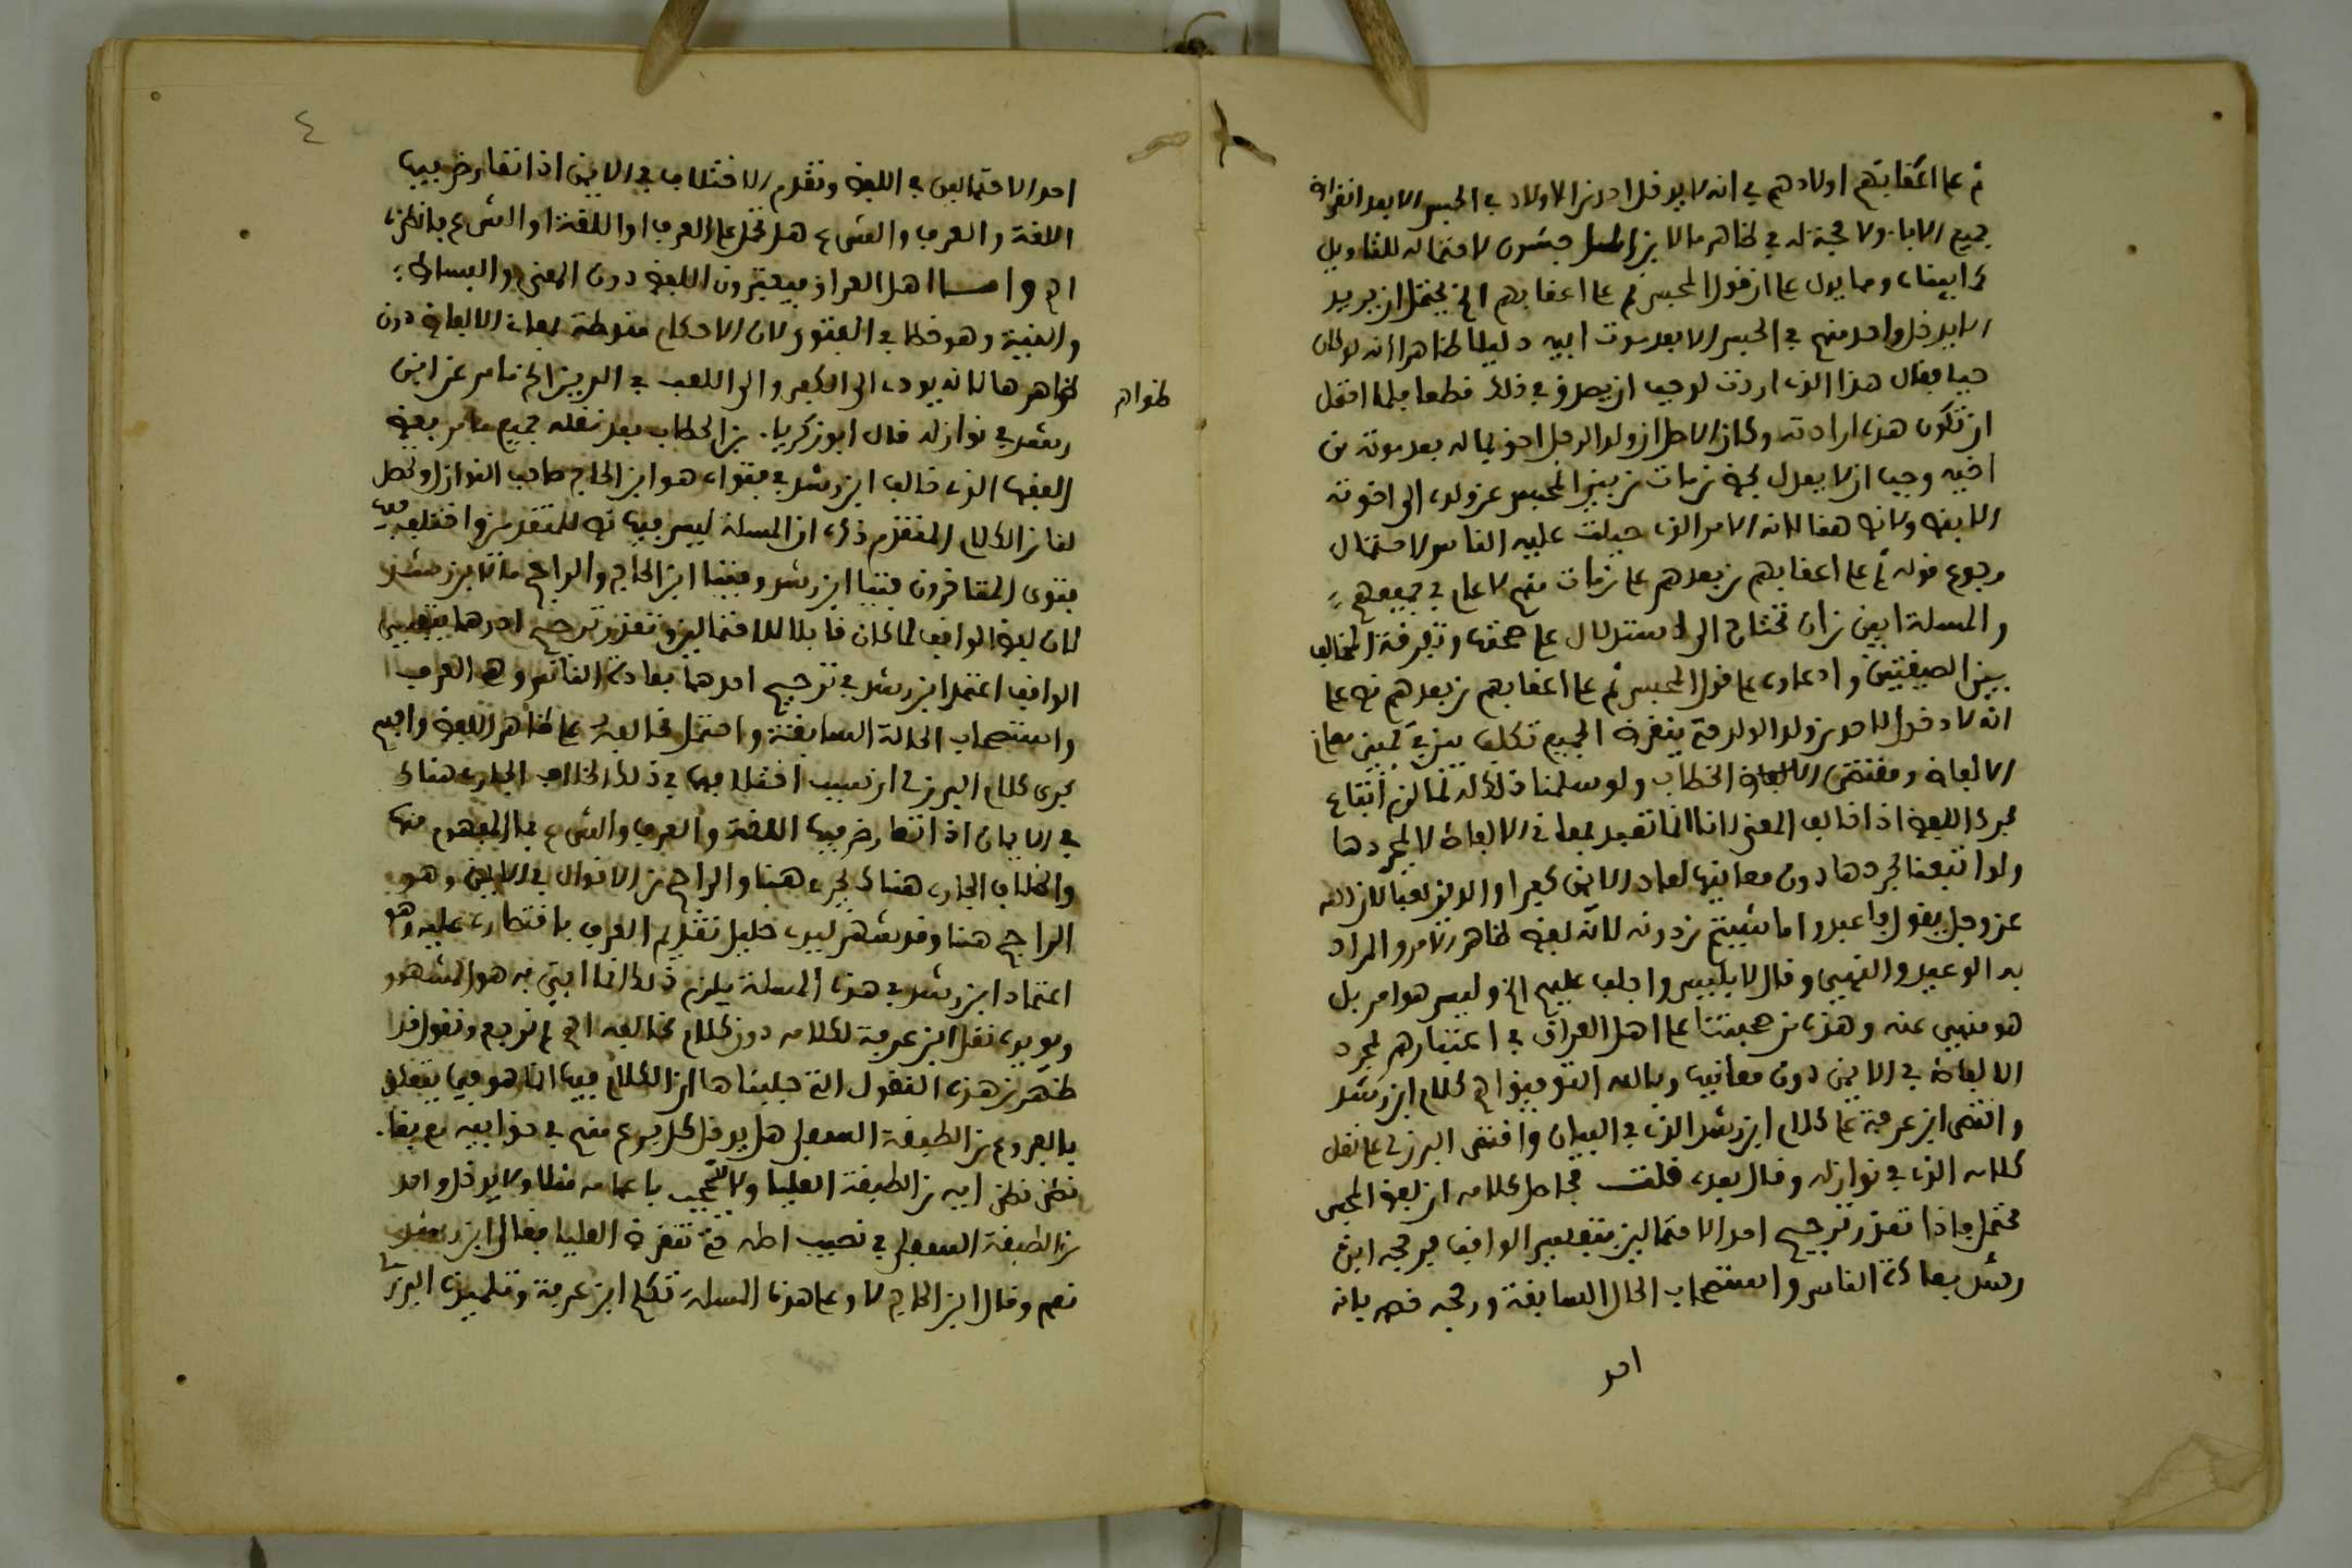 ثم على اعقابهم اولادهم في انه لا يدخل احد من الاولاد في الحبس الا بعد انقراض
جميع الاباء ولا حجة له في ظاهر ما لابن الماجشون لاحتماله للتاويل
كما بيناه ومما يدل على ان قول المحبس ثم على اعقابهم الخ يحتمل ان يريد
الا يدخل واحد منهم في الحبس الا بعد موت ابيه دليلا ظاهرا انه لو كان
حيا فقال هذا الذي اردت لوجب ان يصدق في ذلك قطعا فلما احتمل
ان تكون هذه ارادته وكان الاصل ان ولد الرجل احق بماله بعد موته من
اخيه وجب ان لا يعدل بحظ من مات من بين المحبس عن ولده الى اخوته
الا بنص ولا نص هنا لانه الامر الذي جبلت عليه الناس لاحتمال
رجوع قوله ثم على اعقابهم من بعدهم على من مات منهم لا على جميعهم
والمسلة ابين من ان تحتاج الى الاستدلال على صحتها وتفرقة المخالف
بين الصيغتين وادعاؤه على قول المحبس ثم على اعقابهم من بعدهم نص على
انه لا دخول لاحد من ولد الولد حتى ينقرض الجميع تكلف بين في تبيين معاني
الالفاظ ومقتضى الخطاب ولو سلمنا ذلك له لما لزم اتباع
مجرد اللفظ اذا خالف المعنى لانا انما تعبد بمعاني الالفاظ لا بمجردها
ولو اتبعنا مجردها دون معانيها لعاد الايمن كفرا والدين لعبا لان الله
عز وجل يقول فاعبدوا ما شيتم من دونه لانه لفظ ظاهره الامر والمراد
به الوعيد والنهي وقال لابليس واجلب عليهم الخ وليس هو امر بل
هو منهي عنه وهذه من حجتنا على اهل العراق في اعتبارهم مجرد
الالفاظ في الايمن دون معانيها وبالله التوفيق اهـ كلام ابن رشد
وانتهى ابن عرفة على كلام ابن رشد الذي في البيان واقتصر البرزلي على نقل
كلامه الذي في نوازله وقال بعده قلت فحاصل كلامه ان لفظ المحبس
محتمل فاذا تعذر ترجيح احد الاحتمالين بتفسير الواقف فرجحه ابن
رشد بعادة الناس واستصحاب الحال السابقة ورجحه خصمه بانه
احد
٤
احد الاحتمالين في اللفظ وتقدم الاختلاف في الايمن اذا تعارض فيها
اللغة والعرف والشرع هل تحمل على العرف او اللغة او الشرع فانظره
اهـ واما اهل العراق فيعتبرون اللفظ دون المعنى والبساط
والنية وهو خطا في الفتوى لان الاحكام منوطة بمعاني الالفاظ دون
ظواهرها لانه يودي الى الكفر والى اللعب في الدين الخ ما مر عن ابن
ظواهر
رشد في نوازله قال ابو زكرياء بن الحطاب بعد نقله جميع ما مر بعض
الفقهاء الذي خالف ابن رشد في فتواه هو ابن الحاج صاحب النوازل وتحصل
لنا من الكلام المتقدم ذكره ان المسلة ليس فيها نص للمتقدمين واختلف فيها
فتوى المتاخرون فتيا ابن رشد وفتيا ابن الحاج والراجح ما لابن رشد
لان لفظ الواقف لما كان قابلا للاحتمالين وتعذر ترجيح احدهما بتفسير
الواقف اعتمد ابن رشد في ترجيح احدهما بعادة الناس وهو العرف
واستصحاب الحالة السابقة واحتمل مخالفه على ظاهر اللفظ وافهم
مجرى كلام البرزلي ان سبب اختلافهما في ذلك الخلاف الجاري هناك
في الايمان اذا تعارض فيها اللغة والعرف والشرع فما المفهوم منها
والخلاف الجاري هناك يجري هنا والراجح من الاقوال في الايمن وهو
الراجح هنا وقد شهر سيدي خليل تقديم العرف باقتصاره عليه وهو
اعتماد ابن رشد في هذه المسلة يلزم ذلك ان ما افتى به هو المشهور
ويويده نقل ابن عرفة لكلامه دون كلام مخالفه اهـ ثم نرجع ونقول قد
ظهر من هذه النقول التي جلبناها ان الكلام فيها انما هو فيما يتعلق
بالفروع من الطبقة السفلى هل يدخل كل فرع منهم في حق ابيه
ابيه من الطبقة العليا ولا يحجب باعمامه مثلا ولا يدخل واحد
من الطبقة السفلى في نصيب اصله حتى تنقرض العليا فقال ابن رشد
نعم وقال ابن الحاج لا وعلى هذه المسلة تكلم ابن عرفة وتلميذه البرزلي